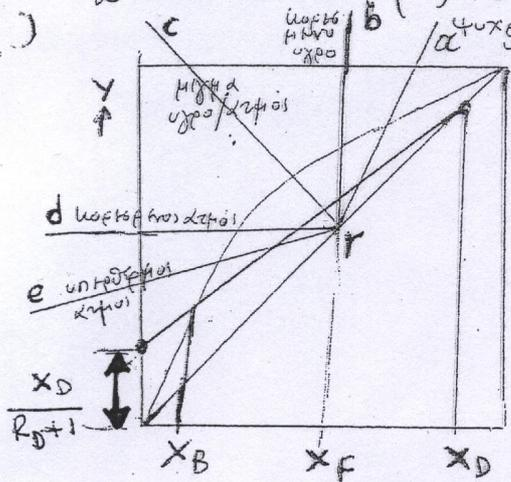 )
c
b
κορεσ
μενο
υγρο
a
ψυχρ
μιγμα
υγρο/ατμος
Y
d κορεσμενος ατμος
r
e υπερθερμος
ατμος
X_D
R_D+1
X_B
X_F
X_D